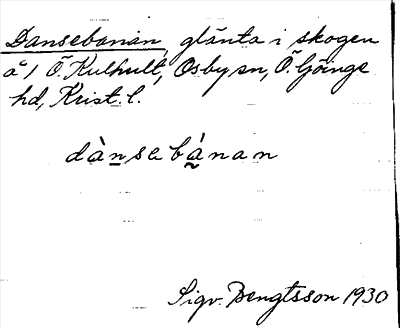 Dansebanan, glänta i skogen
å 1 Ö. Kulhult, Osby sn, Ö. Göinge
hd, Krist. l.
dànsebànan
Sigv. Bengtsson 1930